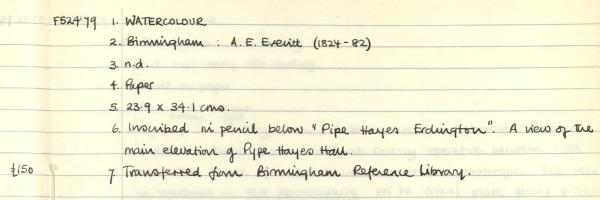 F524'79 1. WATERCOLOUR
2. Birmingham : A. E. Everitt (1824-82)
3. n.d.
4. Paper
5. 23.9 x 34.1 cms.
6. Inscribed in pencil below "Pipe Hayes Erdington". A view of the
main elevation of Pype Hayes Hall.
£150 7. Transferred from Birmingham Reference Library.